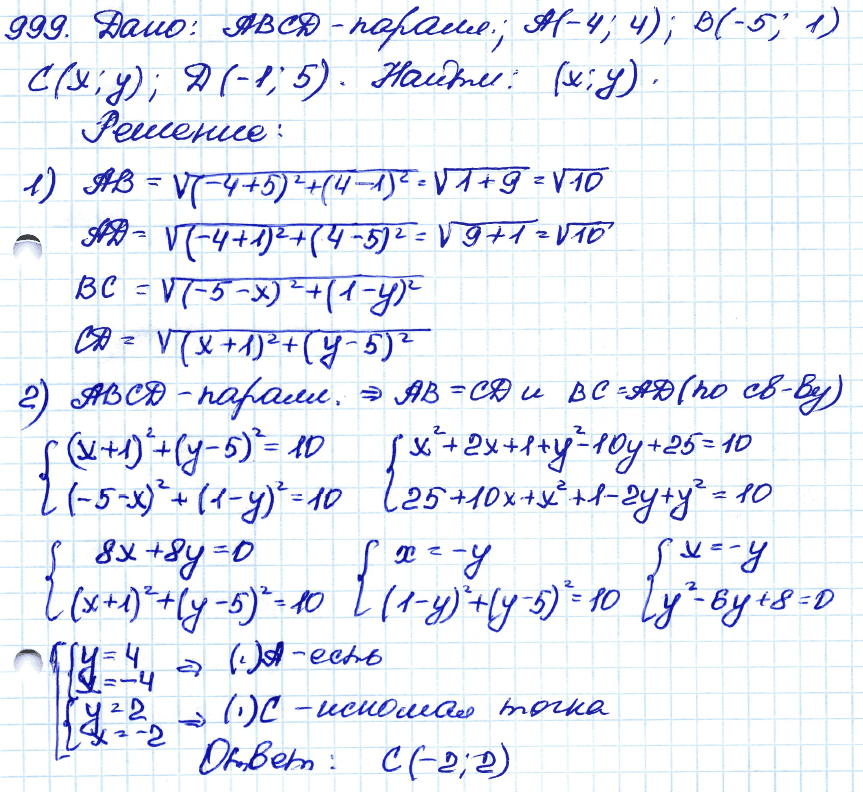 999. Дано: ABCD - паралл.; A(-4; 4); B(-5; 1)
C(x; y); D(-1; 5). Найти: (x; y).
Решение:
1) AB = √((-4+5)²+(4-1)²) = √(1+9) = √10
AD = √((-4+1)²+(4-5)²) = √(9+1) = √10
BC = √((-5-x)²+(1-y)²)
CD = √((x+1)²+(y-5)²)
2) ABCD - паралл. ⇒ AB = CD и BC = AD (по св-ву)
{ (x+1)²+(y-5)² = 10 { x²+2x+1+y²-10y+25 = 10
(-5-x)²+(1-y)² = 10 25+10x+x²+1-2y+y² = 10
{ 8x+8y = 0 { x = -y { x = -y
(x+1)²+(y-5)² = 10 (1-y)²+(y-5)² = 10 y²-6y+8 = 0
[ { y = 4
x = -4 ⇒ (.)A - есть
{ y = 2
x = -2 ⇒ (.)C - искомая точка
Ответ: C(-2; 2)